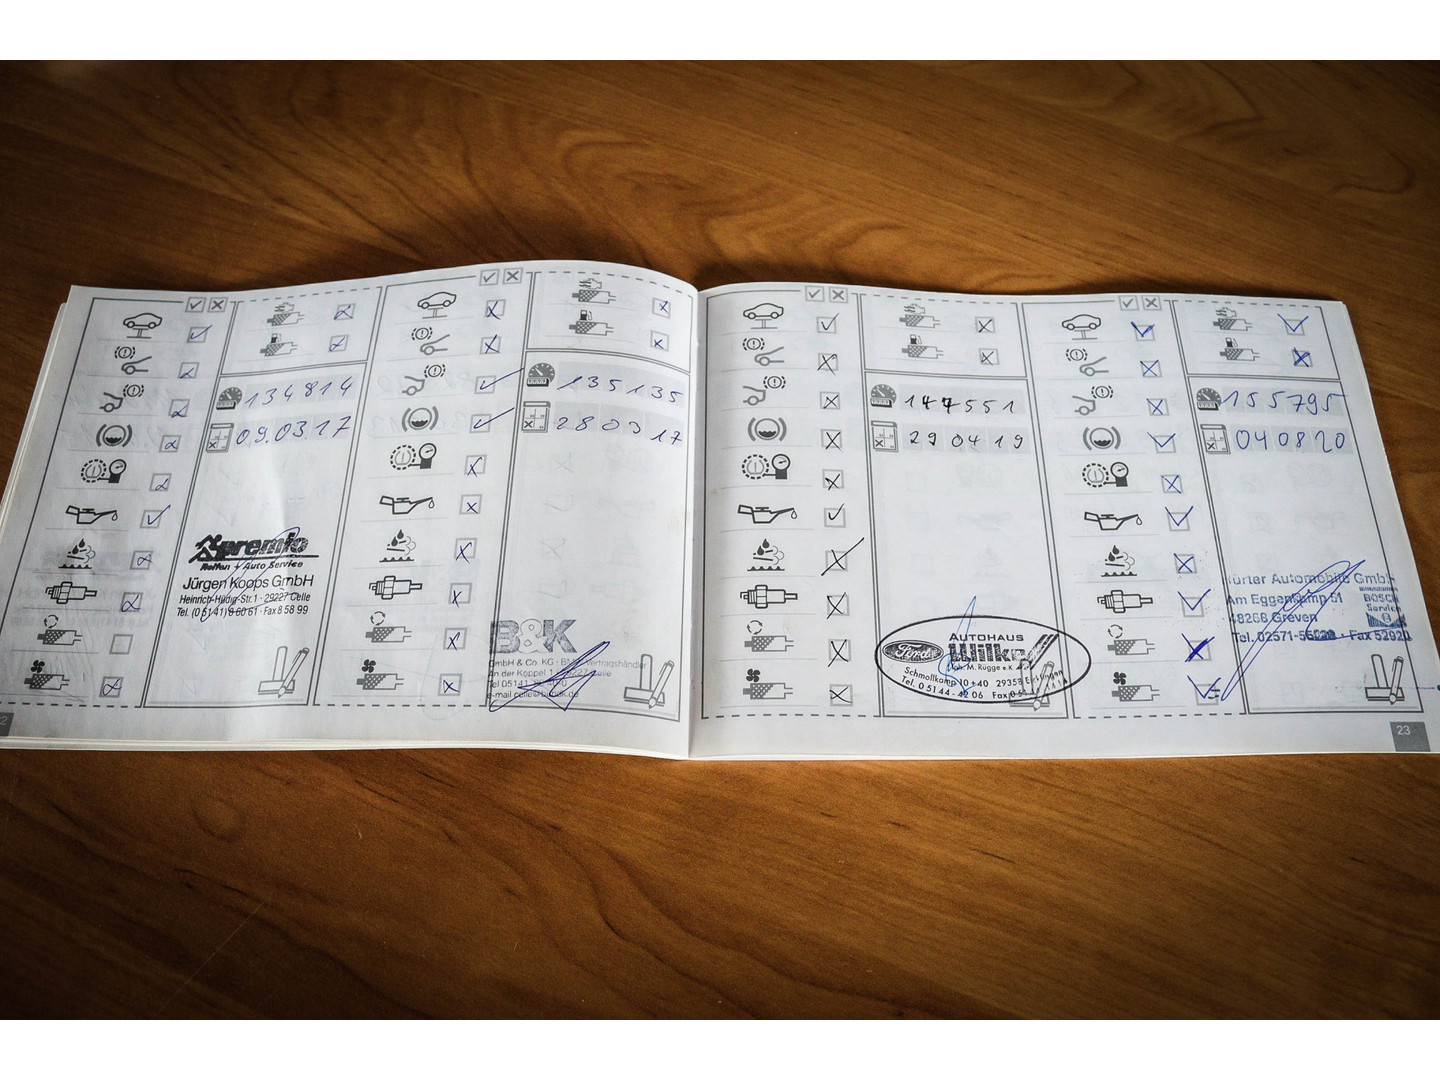 134814
09.03.17
premio
Reifen + Auto Service
Jürgen Koops GmbH
Heinrich-Hildig-Str.1 · 29227 Celle
Tel. (0 51 41) 8 60 61 · Fax 8 58 99
135135
280317
B&K
GmbH & Co. KG · BMW Vertragshändler
An der Koppel 1 · 29227 Celle
Tel 05141
147551
290419
Ford
AUTOHAUS
Wilke
Inh. M. Rügge e.K.
Schmollkamp 10+40 29358 Eicklingen
Tel. 0 51 44 - 42 06 Fax
155795
040820
ürter Automobile GmbH
Am Eggenkamp 51
48268 Greven
Tel. 02571- · Fax 52920
BOSCH
Service
23